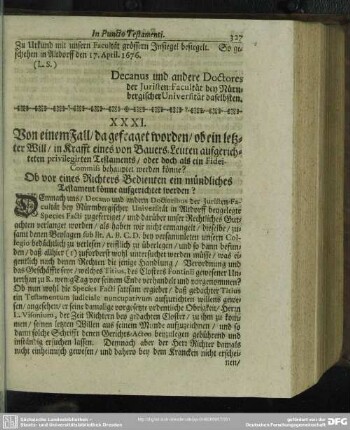 In Puncto Testamenti. 327
Zu Urkund mit unsern Facultät grössern Insiegel besiegelt. So ge-
schehen in Altdorff den 17. April. 1676.
(L.S.)
Decanus und andere Doctores
der Juristen-Facultät bey Nürn-
bergischer Universität daselbsten.
XXXI.
Von einem Fall/ da gefraget worden/ ob ein letz-
ter Will/ in Krafft eines von Bauers-Leuten aufgerich-
teten privilegirten Testaments/ oder doch als ein Fidei-
Commiß behauptet werden könne?
Ob vor eines Richters Bedienten ein mündliches
Testament könne aufgerichtet werden?
DEmnach uns/ Decano und andern Doctoribus der Juristen-Fa-
cultät bey Nürnbergischer Universität in Altdorff beygelegte
Species Facti zugefertiget/ und darüber unser Rechtliches Gut-
achten verlanget worden/ als haben wir nicht ermangelt/ dieselbe/ zu-
samt denen Beylagen sub lit. A. B. C. D. bey versammleten unsern Col-
legio bedächtlich zu verlesen/ reifflich zu überlegen/ und so dann befun-
den/ daß allhier (1) zuforderst wohl untersuchet werden müsse/ was ei-
gentlich nach denen Rechten die jenige Handlung/ Verordnung und
das Geschäfft seye/ welches Titius, des Closters gewesener Un-
terthan zu K. wenig Tag vor seinem Ende verhandelt und vorgenommen?
Ob nun wohl die Species Facti satsam ergiebet/ daß gedachter Titius
ein Testamentum judiciale nuncupativum aufzurichten willens gewe-
sen/ angesehen/ er seine damalige vorgesetzte ordentliche Obrigkeit/ Herrn
L. der Zeit Richtern bey gedachten Closter/ zu ihm zu kom-
men/ seinen letzten Willen aus seinem Munde aufzunehmen/ und so
dann solche Schrifft denen Gerichts-Acten beyzulegen gebührend und
inständig ersuchen lassen. Demnach aber der Herr Richter damals
nicht einheimisch gewesen/ und dahero bey dem Krancken nicht erschei-
nen/